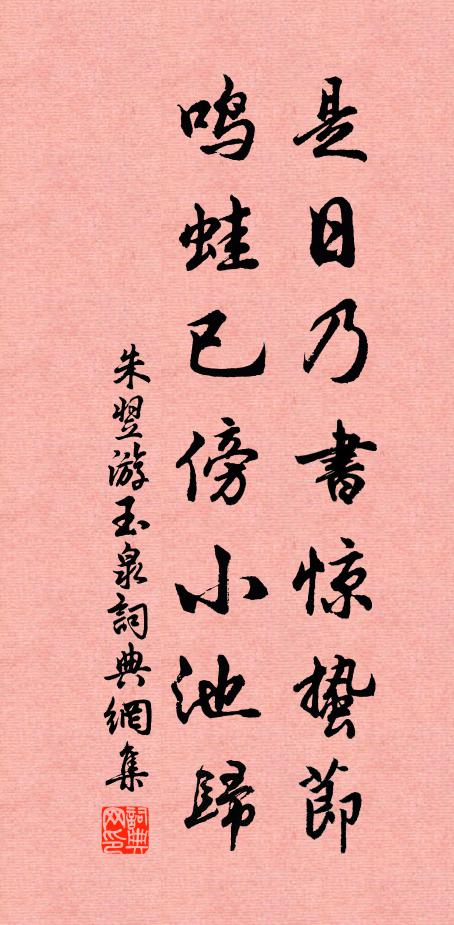 是日乃書惊蛰節
鸣蛙已傍小池歸
朱翌游玉泉詞典網集
詞典网印